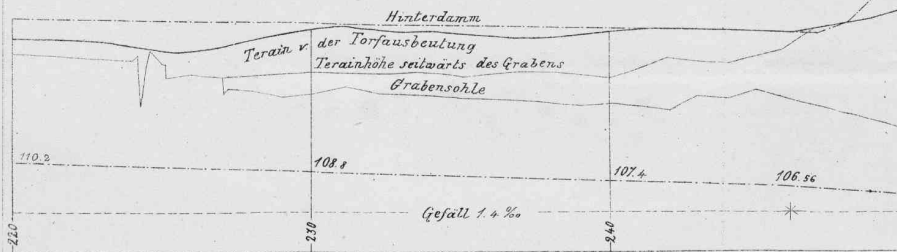 Hinterdamm
Terain v. der Torfausbeutung
Terainhöhe seitwärts des Grabens
Grabensohle
110.2
108.8
107.4
106.56
Gefäll 1.4 ‰
220
230
240